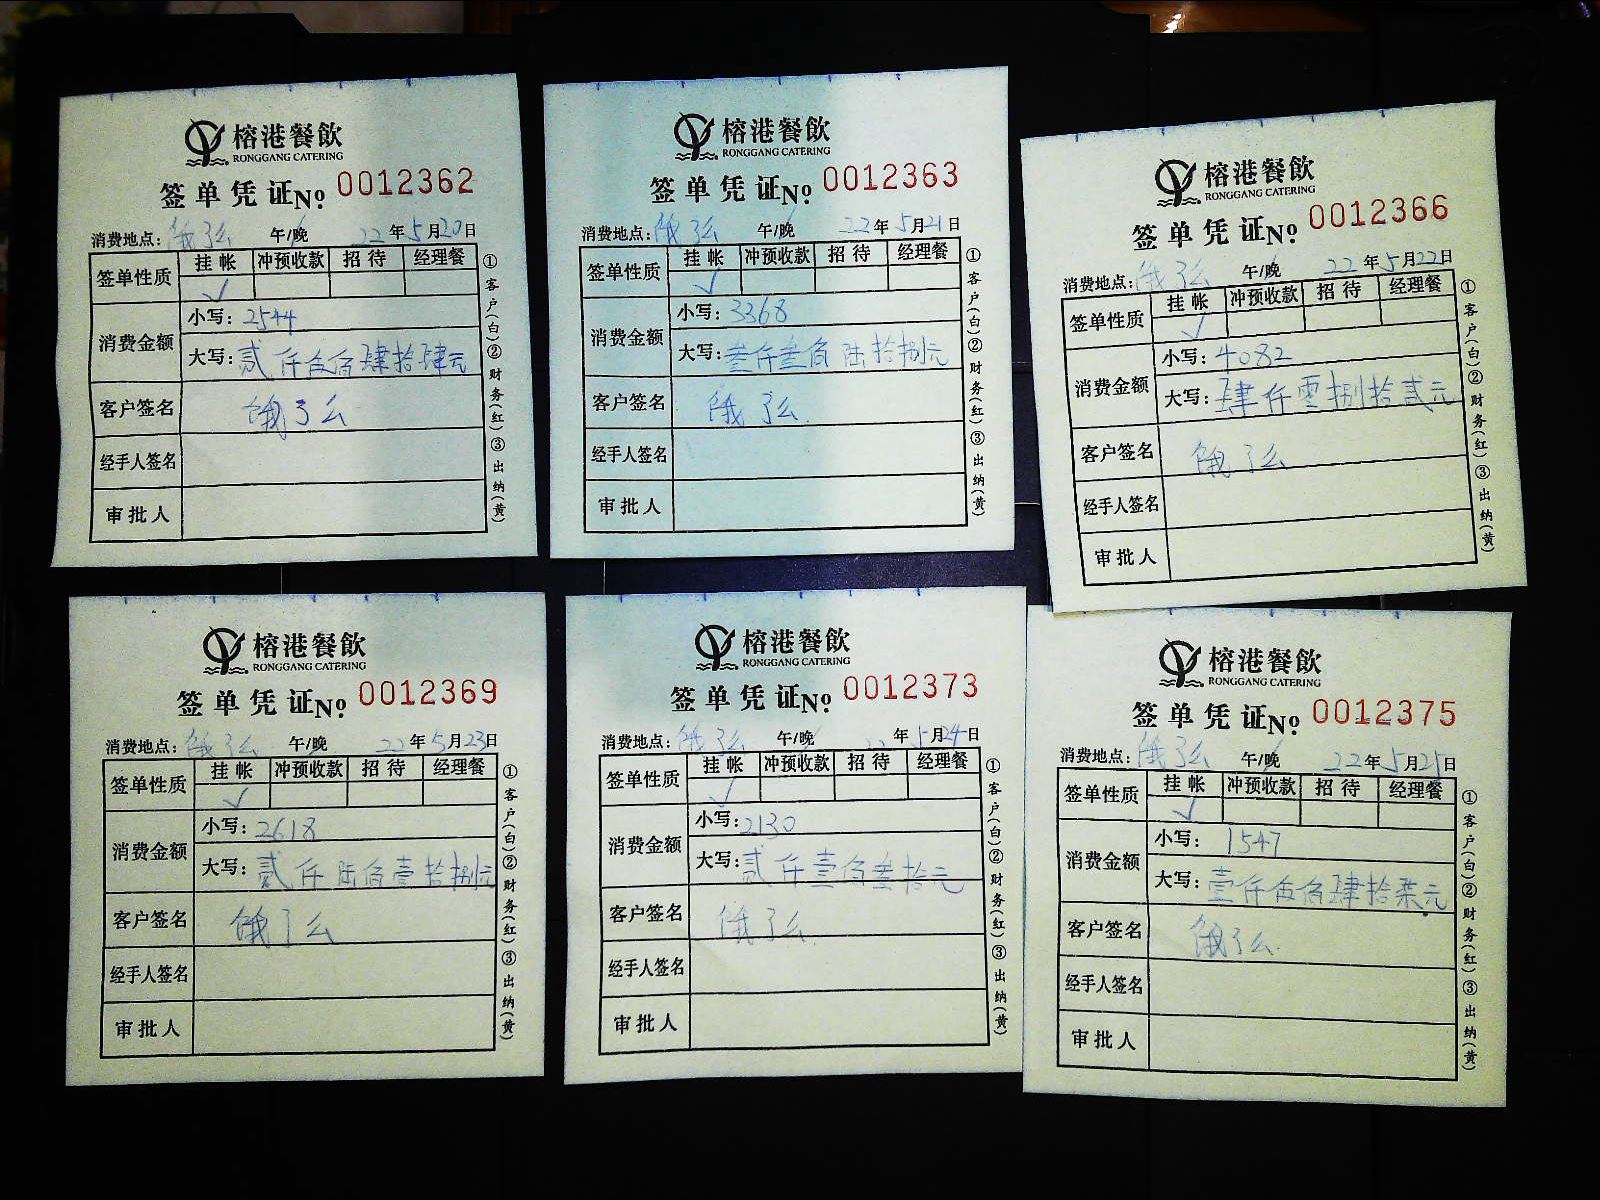 榕港餐飲
RONGGANG CATERING
签单凭证No. 0012362
消费地点: 饿了么 午/晚 22年5月20日
签单性质 挂帐 冲预收款 招待 经理餐
✓
消费金额 小写: 2544
大写: 贰仟伍佰肆拾肆元
客户签名 饿了么
经手人签名
审批人
①客户(白)②财务(红)③出纳(黄)
榕港餐飲
RONGGANG CATERING
签单凭证No. 0012363
消费地点: 饿了么 午/晚 22年5月21日
签单性质 挂帐 冲预收款 招待 经理餐
✓
消费金额 小写: 3368
大写: 叁仟叁佰陆拾捌元
客户签名 饿了么
经手人签名
审批人
①客户(白)②财务(红)③出纳(黄)
榕港餐飲
RONGGANG CATERING
签单凭证No. 0012366
消费地点: 饿了么 午/晚 22年5月22日
签单性质 挂帐 冲预收款 招待 经理餐
✓
消费金额 小写: 4082
大写: 肆仟零捌拾贰元
客户签名 饿了么
经手人签名
审批人
①客户(白)②财务(红)③出纳(黄)
榕港餐飲
RONGGANG CATERING
签单凭证No. 0012369
消费地点: 饿了么 午/晚 22年5月23日
签单性质 挂帐 冲预收款 招待 经理餐
✓
消费金额 小写: 2618
大写: 贰仟陆佰壹拾捌元
客户签名 饿了么
经手人签名
审批人
①客户(白)②财务(红)③出纳(黄)
榕港餐飲
RONGGANG CATERING
签单凭证No. 0012373
消费地点: 饿了么 午/晚 22年5月24日
签单性质 挂帐 冲预收款 招待 经理餐
✓
消费金额 小写: 2130
大写: 贰仟壹佰叁拾元
客户签名 饿了么
经手人签名
审批人
①客户(白)②财务(红)③出纳(黄)
榕港餐飲
RONGGANG CATERING
签单凭证No. 0012375
消费地点: 饿了么 午/晚 22年5月25日
签单性质 挂帐 冲预收款 招待 经理餐
✓
消费金额 小写: 1547
大写: 壹仟伍佰肆拾柒元
客户签名 饿了么
经手人签名
审批人
①客户(白)②财务(红)③出纳(黄)